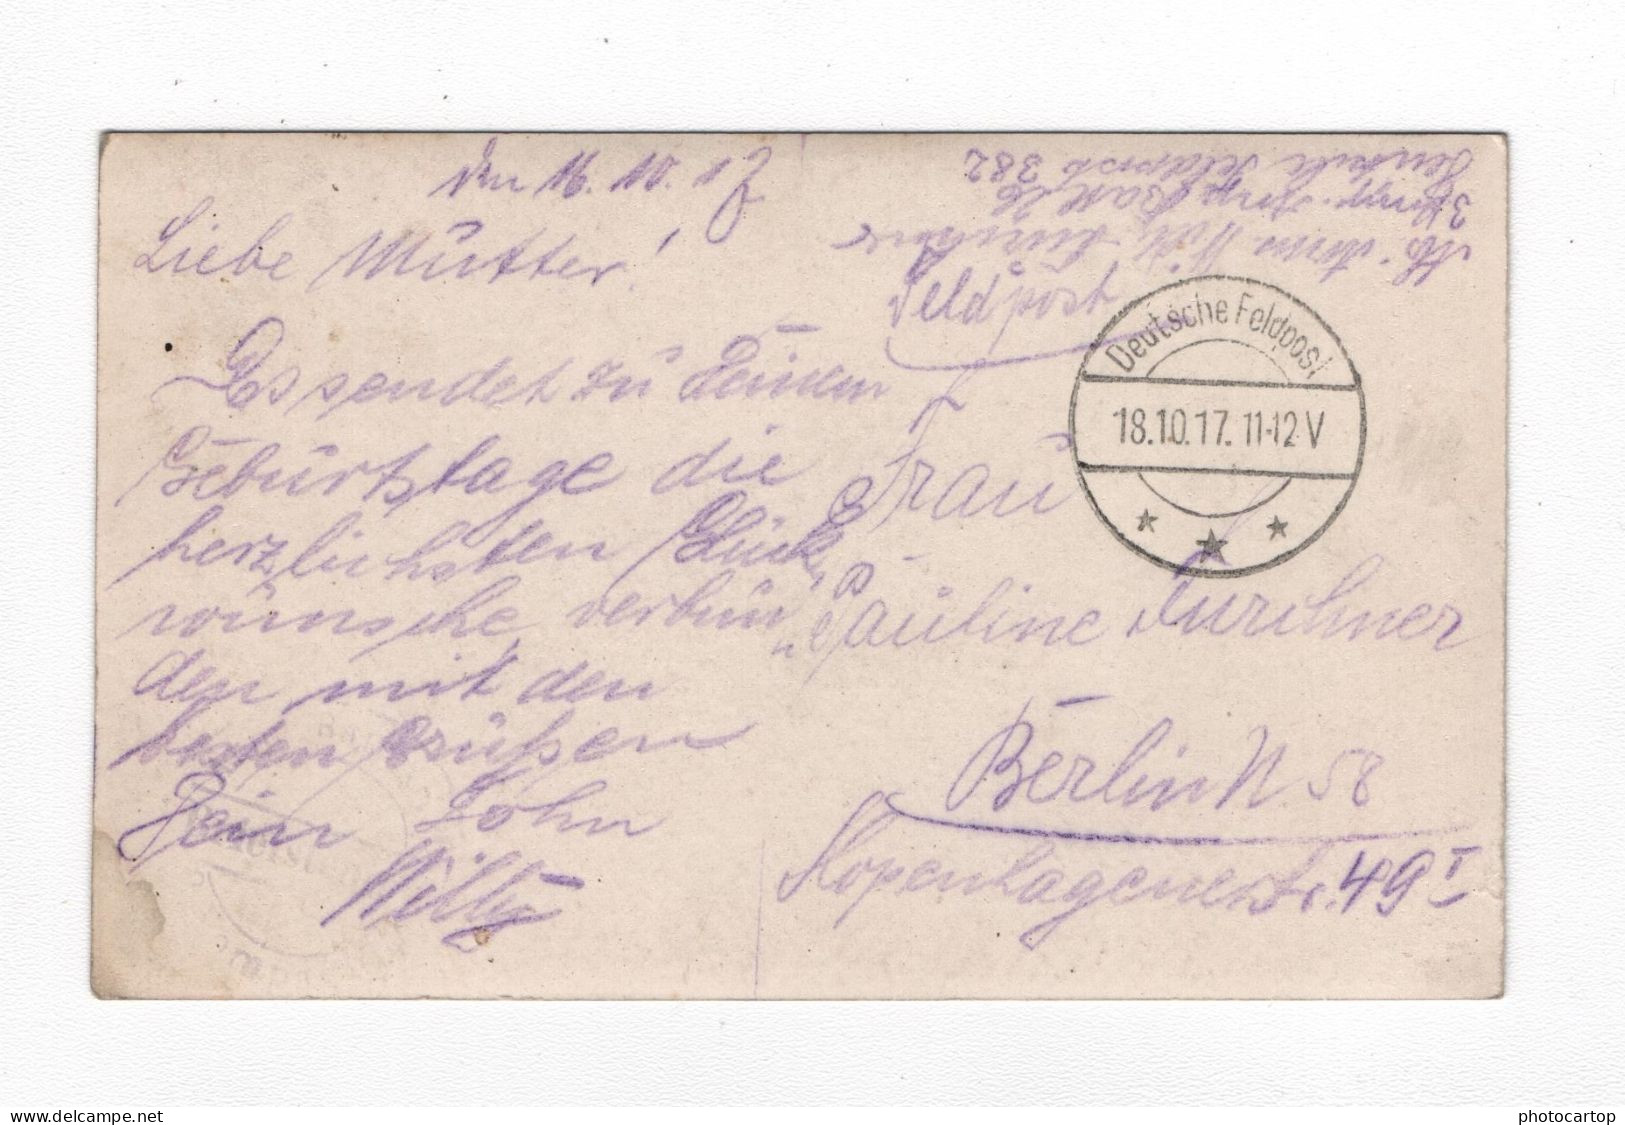 den 16.10.17
Liebe Mutter!
Es sendet zu Deinem
Geburtstage die
herzlichsten Glück
wünsche, verbun
den mit den
besten Grüßen
Dein Sohn
Willy
Feldpost 382
Feldpost
Deutsche Feldpost
18.10.17. 11-12 V
Frau
Pauline Kirchner
Berlin N 58
Kopenhagenerstr. 49 I
delcampe.net
photocartop